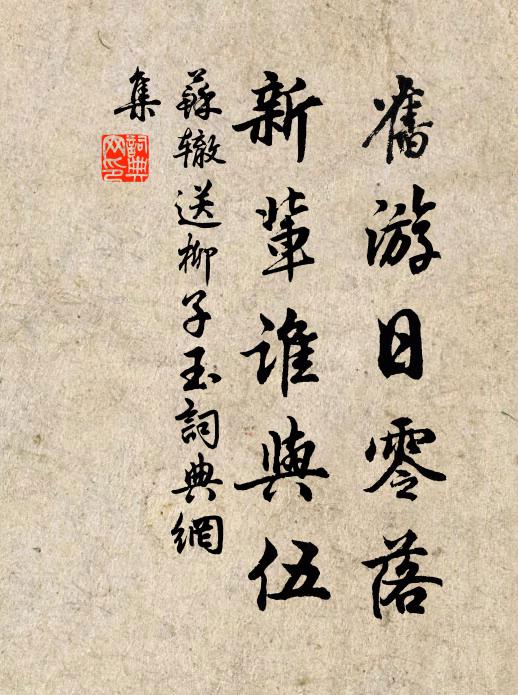 舊游日零落
新輩誰與伍
蘇辙送柳子玉詞典網
集
詞典
网印